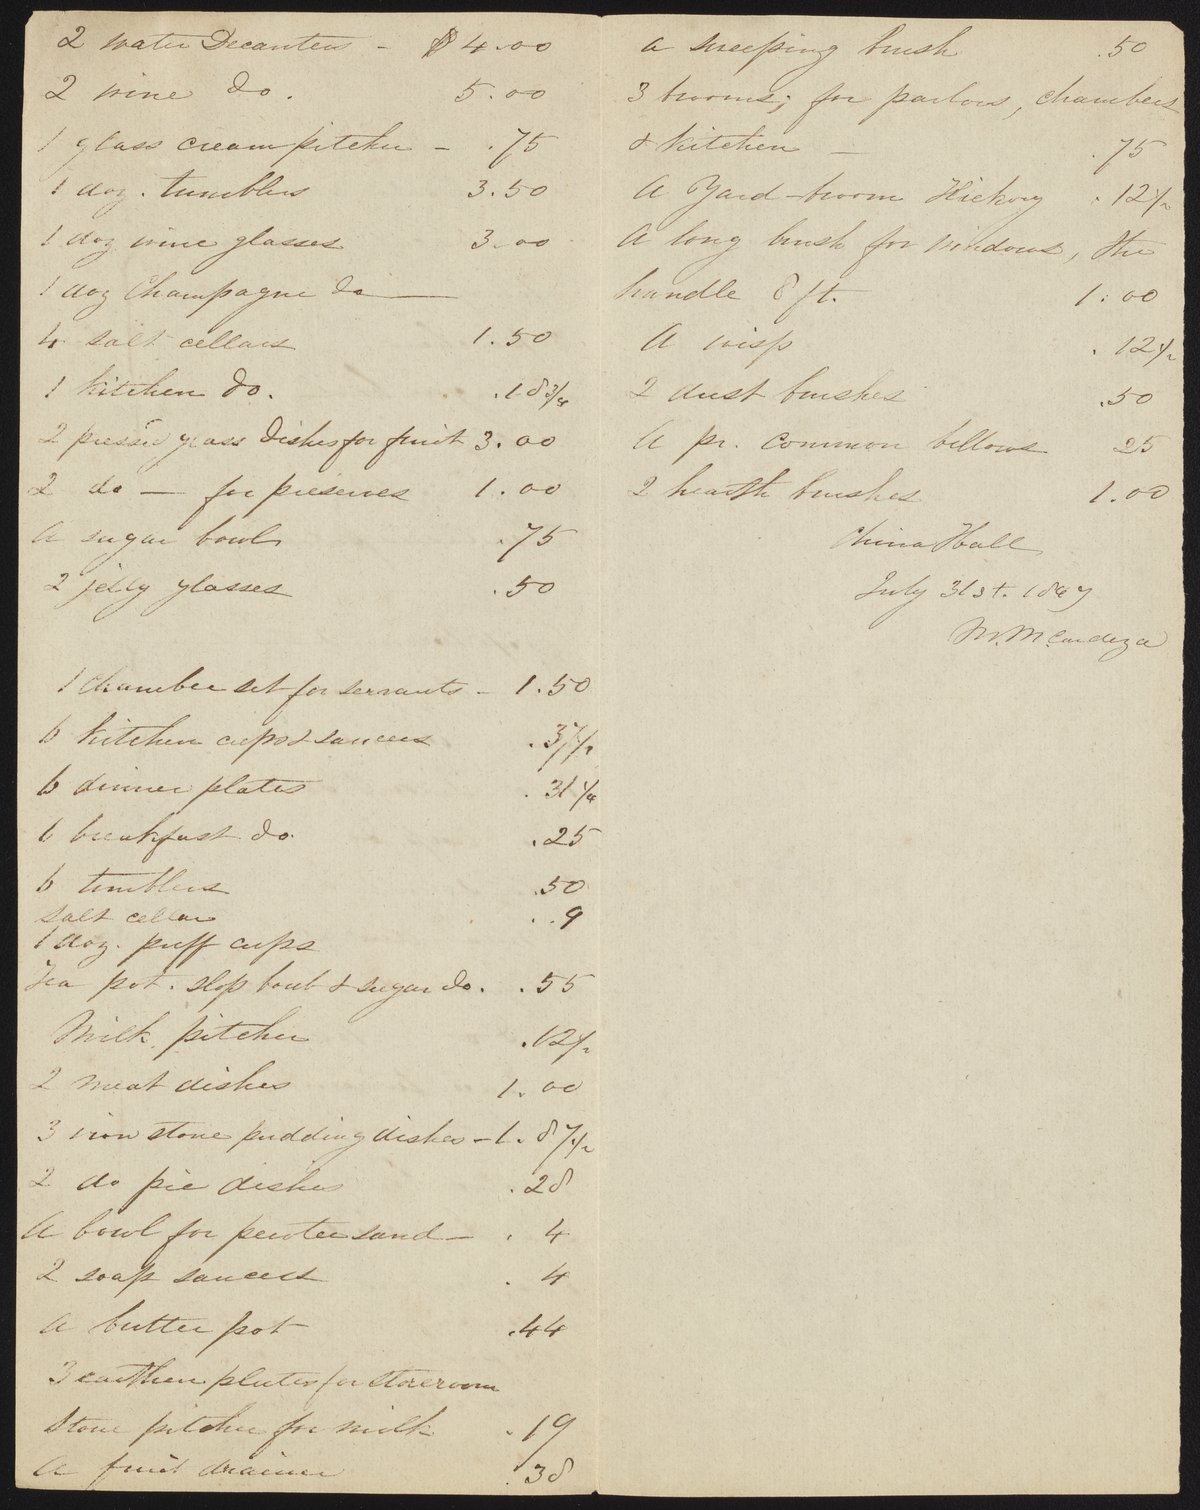 2 water Decanters - $ 4.00
2 wine do. 5.00
1 glass cream pitcher - .75
1 doz. tumblers 3.50
1 doz wine glasses 3.00
1 doz Champagne do
4 salt cellars 1.50
1 kitchen do. .18 3/4
2 pressed glass dishes for fruit 3.00
2 do — for preserves 1.00
A sugar bowl .75
2 jelly glasses .50
1 chamber set for servants - 1.50
6 kitchen cups & saucers .37 1/2
6 dinner plates .31 1/4
6 breakfast do .25
6 tumblers .50
salt cellar . .9
1 doz. puff cups
Tea pot. slop bowl & sugar do. .55
Milk pitcher .12 1/2
2 meat dishes 1.00
3 iron stone pudding dishes - 1.87 1/2
2 do pie dishes .28
A bowl for pewter sand - . 4
2 soap saucers . 4
A butter pot .44
3 earthen plates for storeroom
Stone pitcher for milk .19
A fruit drainer .38
A sweeping brush .50
3 brooms; for parlors, chambers
& kitchen — .75
A Yard-broom Hickory .12 1/2
A long brush for windows, the
handle 8 ft. 1.00
A wisp .12 1/2
2 dust brushes .50
A pr. common bellows 25
2 hearth brushes 1.00
China Hall
July 31st. 1847
M. M. Cardeza